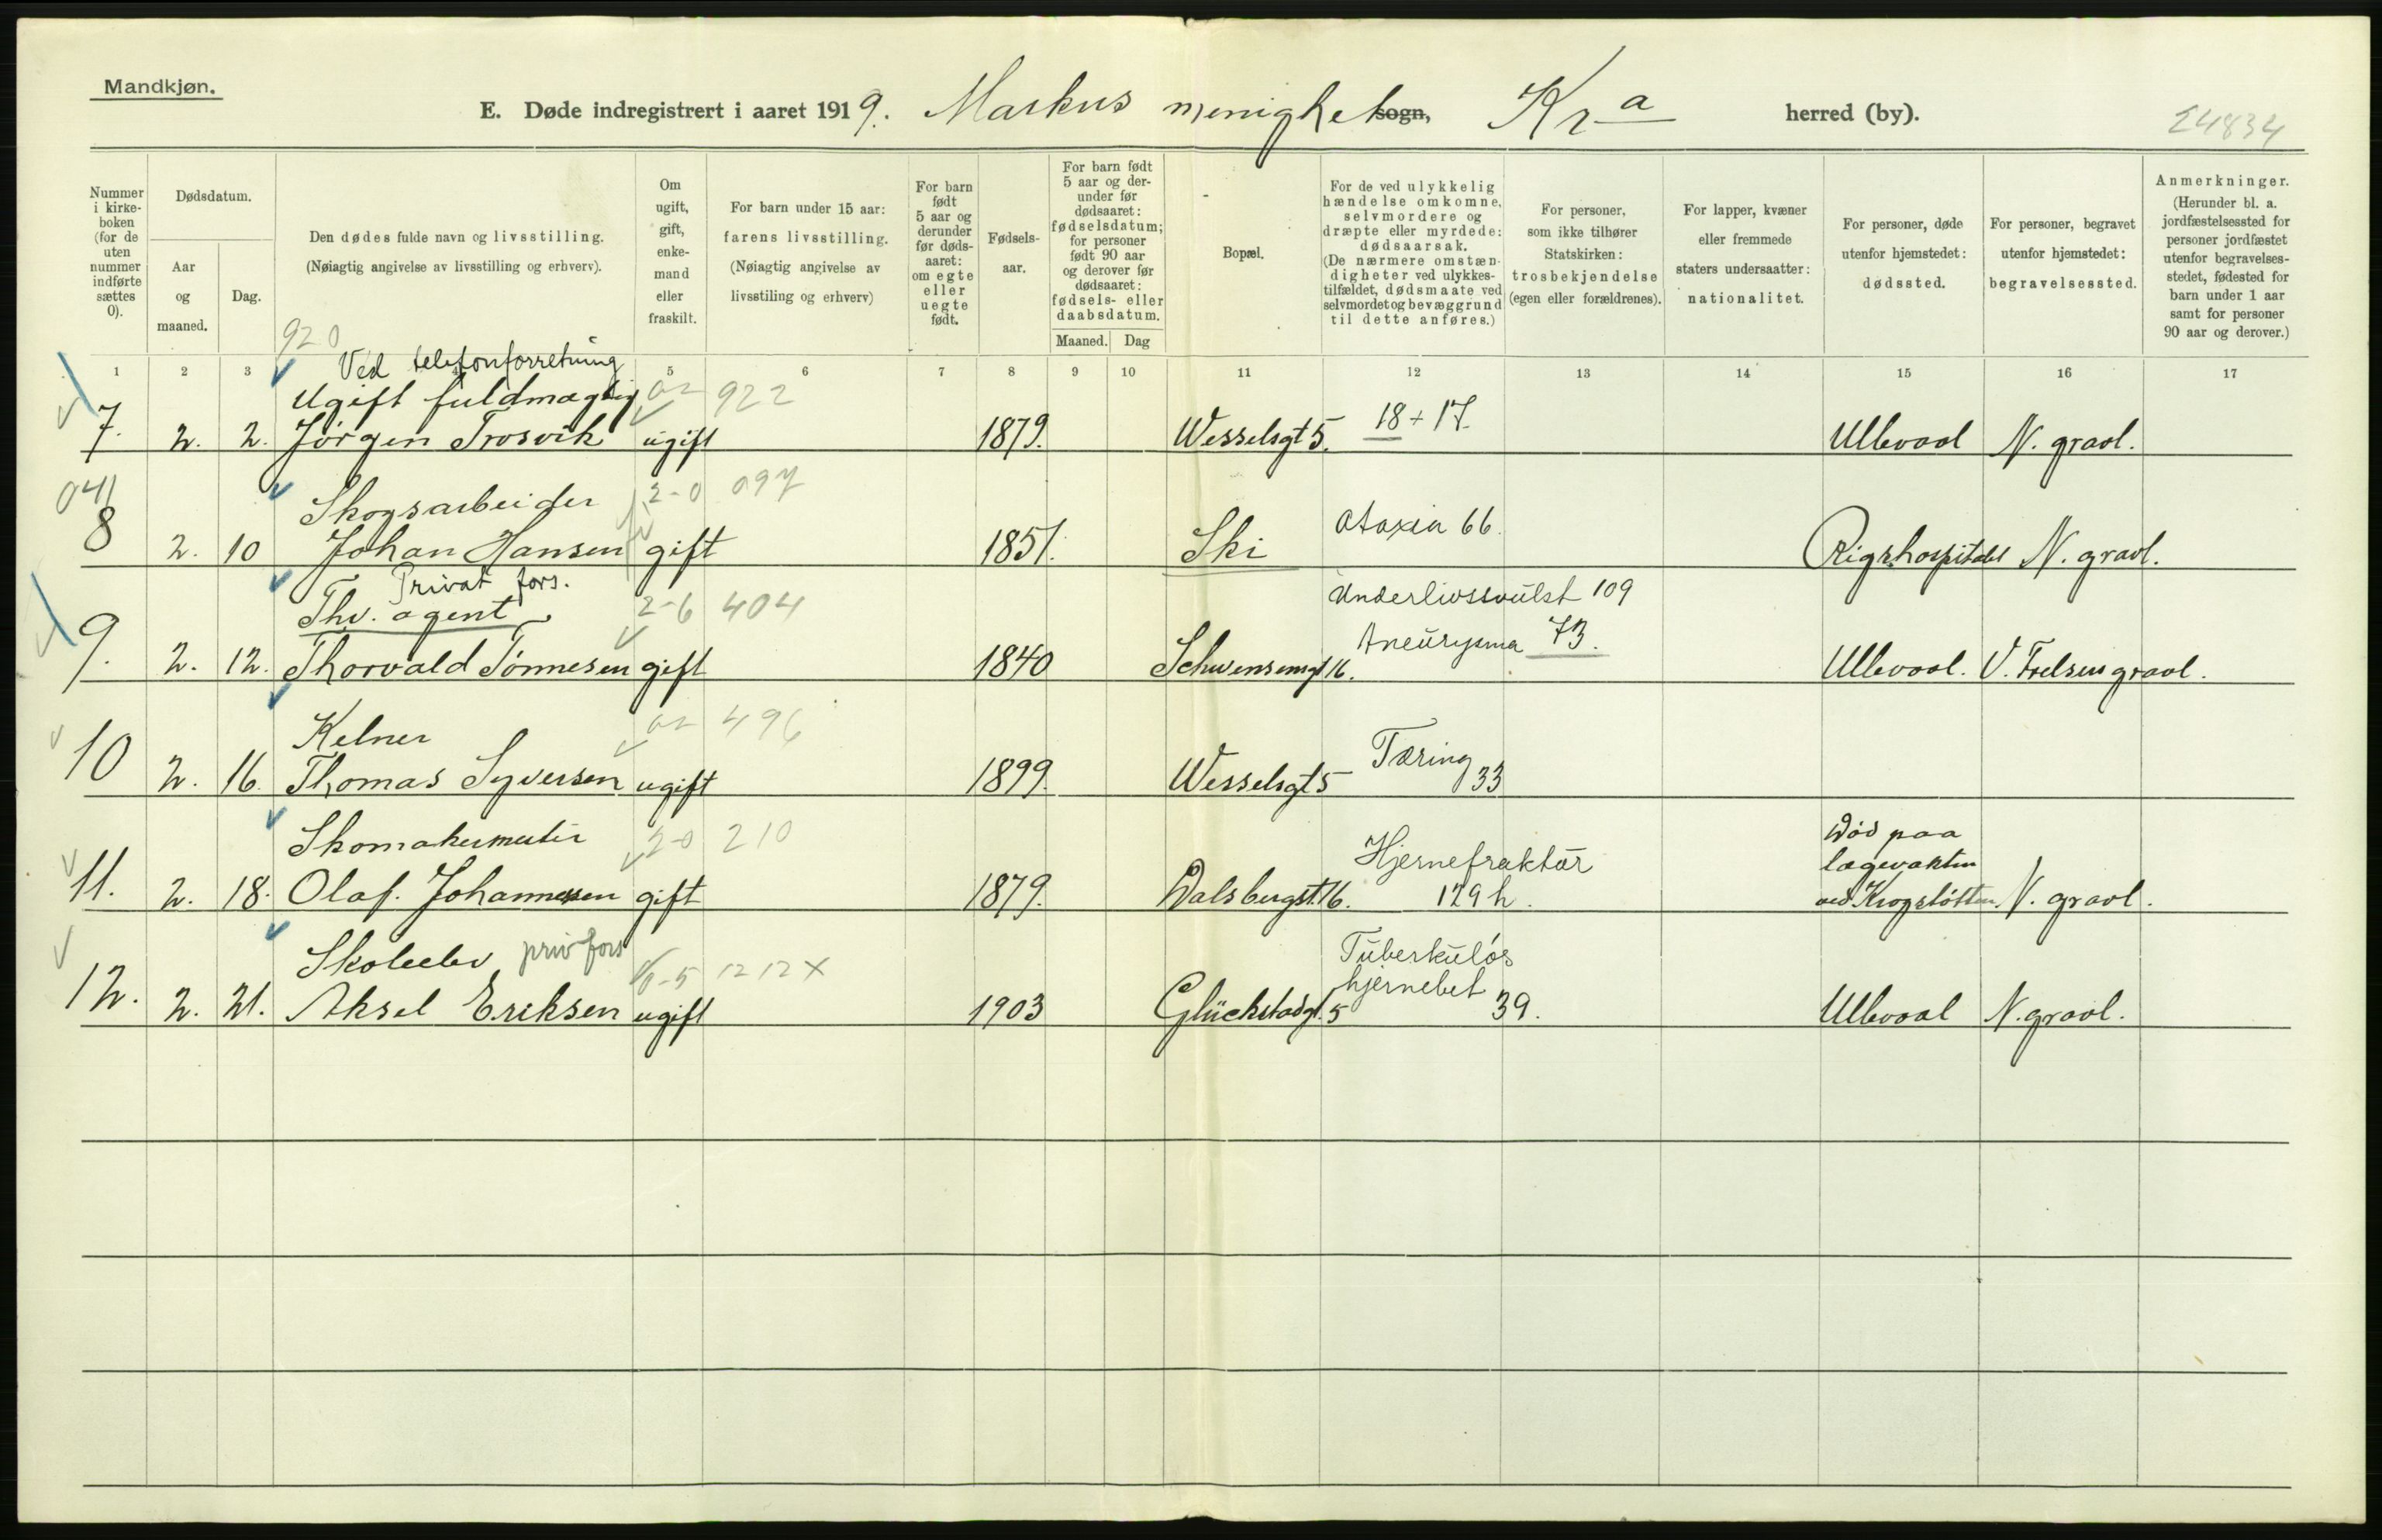 Mandkjøn.
E. Døde indregistrert i aaret 1919. Markus menighet sogn, Kra herred (by).
24834
Nummer i kirke-boken (for de uten nummer indførte sættes 0).
Dødsdatum.
Aar og maaned.
Dag.
Den dødes fulde navn og livsstilling.
(Nøiagtig angivelse av livsstilling og erhverv).
Om ugift, gift, enke-mand eller fraskilt.
For barn under 15 aar: farens livsstilling.
(Nøiagtig angivelse av livsstiling og erhverv)
For barn født 5 aar og derunder før døds-aaret: om egte eller uegte født.
Fødsels-aar.
For barn født 5 aar og der-under før dødsaaret: fødselsdatum; for personer født 90 aar og derover før dødsaaret: fødsels- eller daabsdatum.
Maaned. Dag
Bopæl.
For de ved ulykkelig hændelse omkomne, selvmordere og dræpte eller myrdede: dødsaarsak.
(De nærmere omstæn-digheter ved ulykkes-tilfældet, dødsmaate ved selvmordet og bevæggrund til dette anføres.)
For personer, som ikke tilhører Statskirken: trosbekjendelse (egen eller forældrenes).
For lapper, kvæner eller fremmede staters undersaatter: nationalitet.
For personer, døde utenfor hjemstedet: dødssted.
For personer, begravet utenfor hjemstedet: begravelsessted.
Anmerkninger.
(Herunder bl. a. jordfæstelsessted for personer jordfæstet utenfor begravelses-stedet, fødested for barn under 1 aar samt for personer 90 aar og derover.)
1 2 3 5 6 7 8 9 10 11 12 13 14 15 16 17
920
Ved telefonforretning
Ugift fuldmægtig 922
7. 2. 2. Jörgen Trosvik ugift 1879. Wesselsgt 5. 18 + 17. Ullevaal N. gravl.
041
Skogsarbeider 2-0 097
8 2. 10 Johan Hansen gift 1851. Ski ataxia 66. Rigshospitalet N. gravl.
Privat fors.
Thv. agent 2-6 404 Underlivssvulst 109
9. 2. 12. Thorvald Tönnesen gift 1840 Schwensensgt 16. Aneurysma 73. Ullevaal. V. Frelsers gravl.
Kelner 496
10 2. 16. Thomas Syversen ugift 1899. Wesselsgt 5 Tæring 33
Skomakermester 2-0 210
11. 2. 18. Olaf. Johannesen gift 1879. Dalsbergst. 16. Hjernefraktur 129 h. Död paa lægevakten ved Krogstötten N. gravl.
Skoleelev priv fors 0-5 1212 X
12. 2. 21. Aksel Eriksen ugift 1903 Glückstadgt. 5 Tuberkulós hjernebet 39. Ullevaal N. gravl.